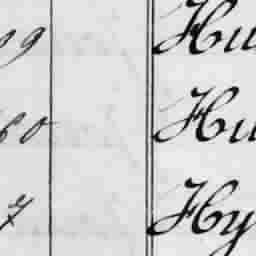 99 Hu
60 Hu
7 Hy